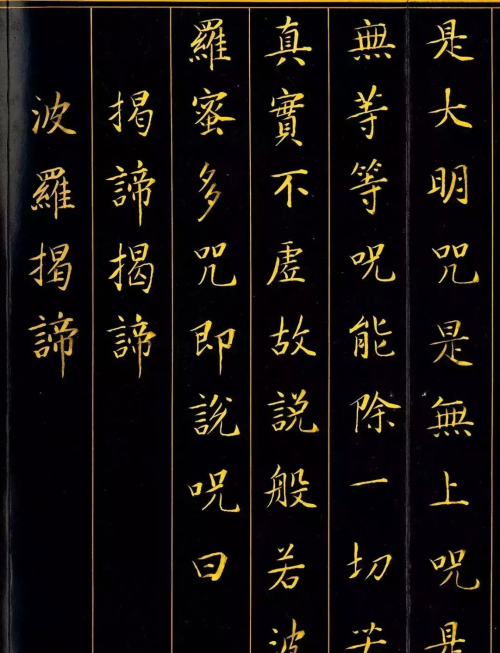 是大明咒是無上呪是
無等等呪能除一切苦
真實不虛故説般若波
羅蜜多咒即說呪曰
揭諦揭諦
波羅揭諦